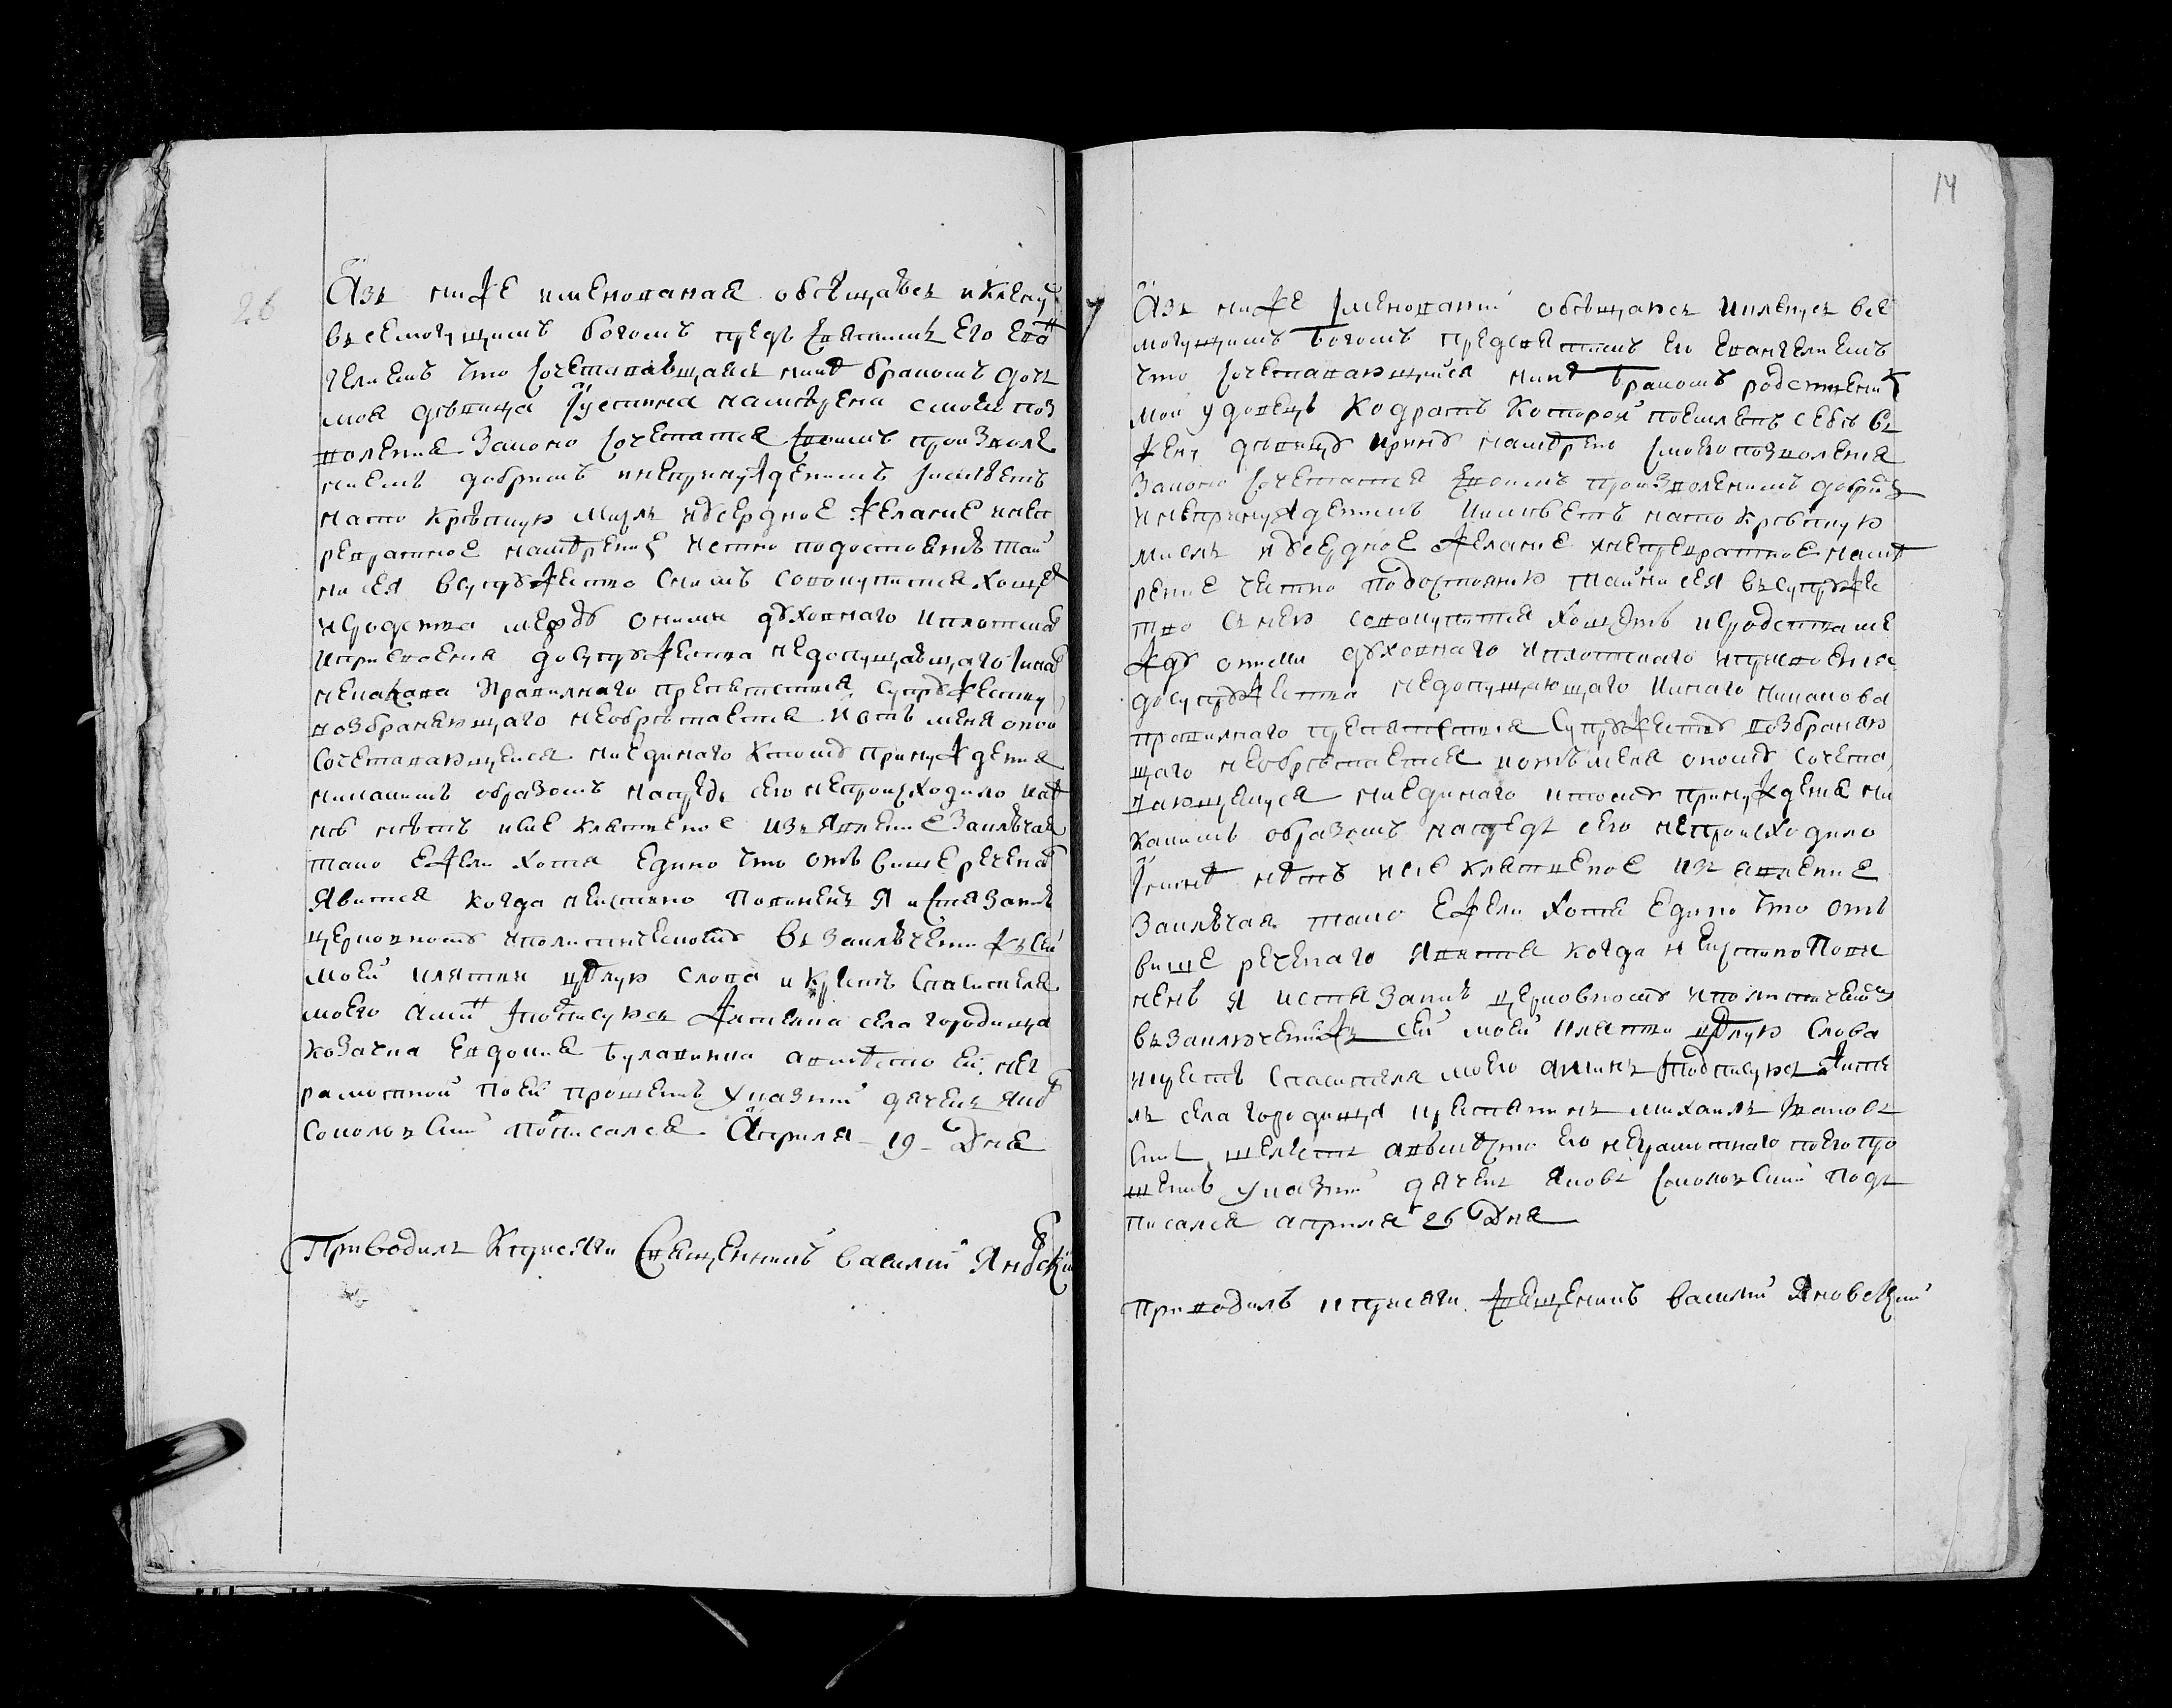 26
Азъ ниже именованая обещаюсь и кленусь
всемогущимъ богомъ предъ святимъ Его Еван
гелиемъ что сочетавающаясъ нине бракомъ дочъ
моя девица Иустина намерена с моего поз
воления законо сочетатся своимъ произволе
ниемъ добримъ и непринужденимъ имеетъ
на то крепкую мислъ и усердное желание и неп
ревратное намерение честно по достоянию тай
ни сея в супружество снимъ совокупится хощетъ
и сродства между оними духовнаго и плотскаго
и присвоения до супружества недопущающаго и инаго
некакова правилнаго препятствия супружеству
возбраняющаго необретается и отъ мене оной
сочетавающейся ниединаго к тому принуждения
никакимъ образомъ напредъ сего непроисходило и ны
не нетъ и сие клятвеное изъявление заключая
тако Ежели хотя Едино что отъ вишереченаго
Явится когда неистино повиненъ Я истязанию
церковному и политическому въ заключении жъ сей
моей клятви целую слова и крестъ спасителя
моего аминъ подписуюсъ жителка села городища
козачка Евдокия Булавинка а вместо ей нег
рамотной по ей прошению указний дячекъ Яков
Соколовъский подписался Априля 19 Дня
Приводилъ К присяги Священникъ василий Яновский
14
Азъ ниже именований обещаюсъ и кленусъ все
могущимъ Богомъ предъ святимъ Его Евангелиемъ
что сочетавающийся нине Бракомъ родственикъ
мой удовецъ Кодратъ которой поемлетъ себе въ
жену девицу Ирину намеренъ с моего позволения
законо сочетатся своимъ произволениемъ добримъ
и непринужденимъ и имеетъ на то крепкую
мислъ и усердное желание и непревратное наме
рение честно по достоянию тайни сея въ супруже
тво съ нею совокупится хощетъ и сродства ме
жду оними духовнаго и плотскаго и присвоения
до супружества недопущающаго и инаго никакова
правилнаго препятствия супружеству возбраняю
щаго необретается и отъ мене оному сочета
вающемуся ниединаго к тому принуждения ни
какимъ образомъ напредъ сего непроисходило
И нине нетъ и сие клятвеное изъявление
заключая тако Ежели хотя Едино что отъ
више реченаго явится когда неистино пови
ненъ я истязанию церковному и политическому
въ заключении жъ сей моей клятви целую слова
и крестъ спасителя моего аминъ подписуюсъ жите
лъ села городища крестянинъ михаилъ Ивановъ
синъ Шелестъ а вместо Его неграмотнаго по его про
шению указний дячекъ Яковъ Соколовъский подъ
писался априля 26 Дня
Приводилъ к присяги Священикъ василий Яновский